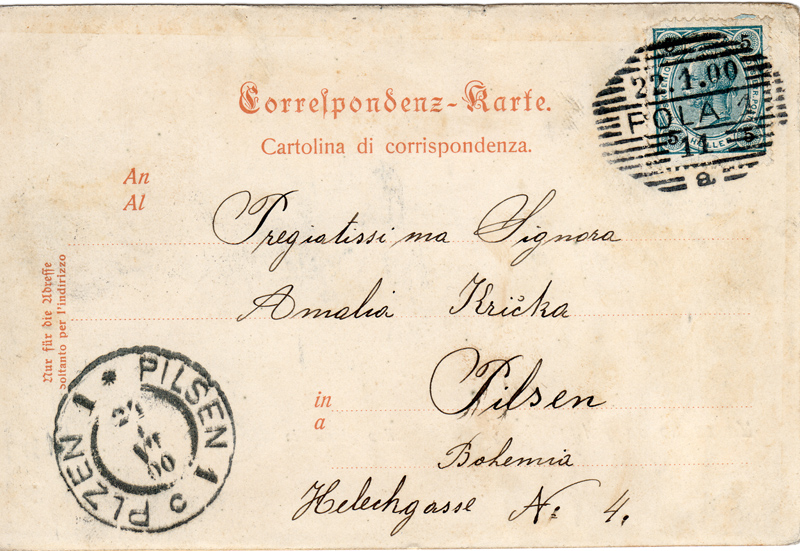 Correspondenz-Karte.
Cartolina di corrispondenza.
An
Al
Pregiatissima Signora
Amalia Krička
in
a
Pilsen
Bohemia
Helechgasse No 4.
Nur für die Adresse
soltanto per l'indirizzo
5 5
22.1.00
POLA 1
5 HELLER 5
11
a
* PILSEN 1
PLZEŇ 1 c
00